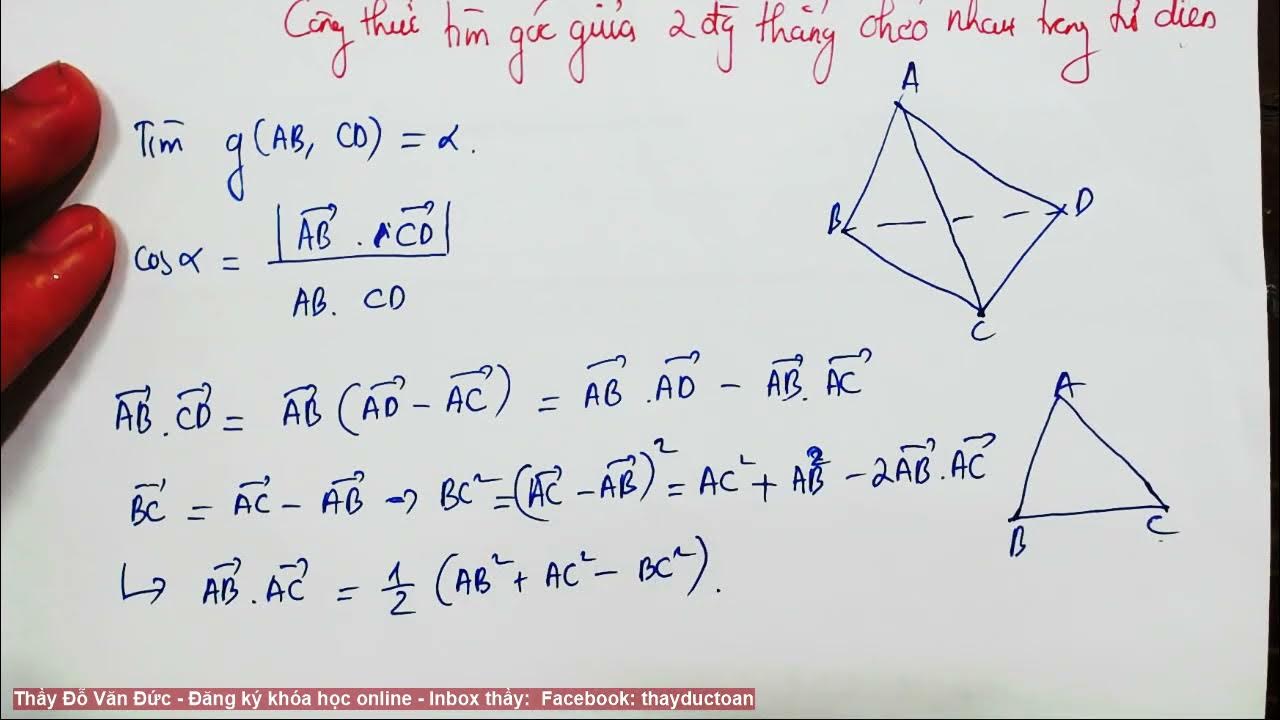 Công thức tìm góc giữa 2 đg thẳng chéo nhau trong tứ diện
Tìm g(AB, CD) = α.
cosα = |\overrightarrow{AB} . \overrightarrow{CD}| / AB. CD
\overrightarrow{AB} . \overrightarrow{CD} = \overrightarrow{AB} (\overrightarrow{AD} - \overrightarrow{AC}) = \overrightarrow{AB} . \overrightarrow{AD} - \overrightarrow{AB} . \overrightarrow{AC}
\overrightarrow{BC} = \overrightarrow{AC} - \overrightarrow{AB} → BC² = (\overrightarrow{AC} - \overrightarrow{AB})² = AC² + AB² - 2\overrightarrow{AB} . \overrightarrow{AC}
↳ \overrightarrow{AB} . \overrightarrow{AC} = 1/2 (AB² + AC² - BC²).
A
B
D
C
A
B
C
Thầy Đỗ Văn Đức - Đăng ký khóa học online - Inbox thầy: Facebook: thayductoan